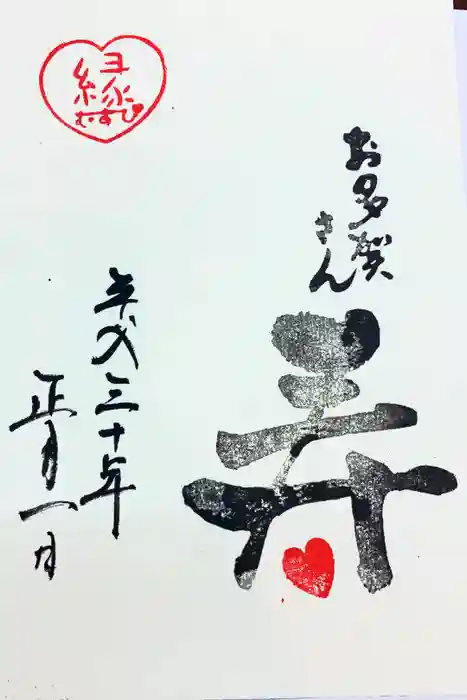 お多賀さん
寿
平成三十年
正月一日
縁
むすび